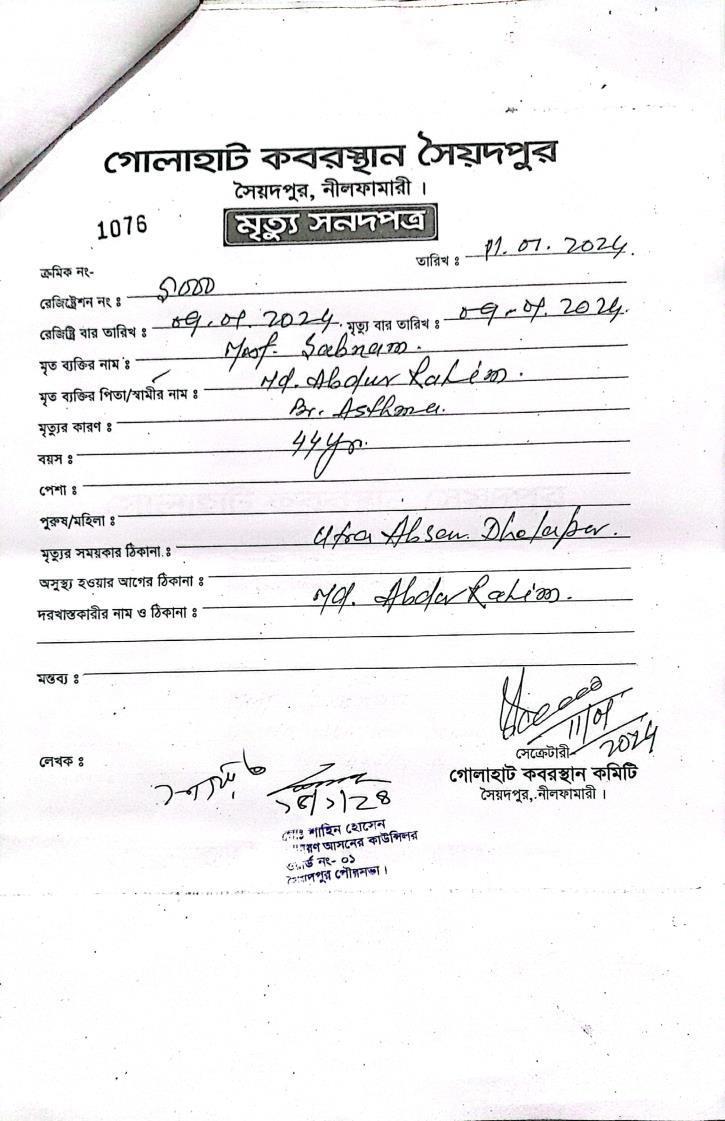 গোলাহাট কবরস্থান সৈয়দপুর
সৈয়দপুর, নীলফামারী ।
1076
মৃত্যু সনদপত্র
তারিখ ঃ 11.01.2024.
ক্রমিক নং-
রেজিষ্ট্রেশন নং ঃ
রেজিষ্ট্রি বার তারিখ ঃ 09.01.2024. মৃত্যু বার তারিখ ঃ 09.01.2024.
মৃত ব্যক্তির নাম ঃ Most. Sabnam.
মৃত ব্যক্তির পিতা/স্বামীর নাম ঃ Md. Abdur Rahim.
মৃত্যুর কারণ ঃ Br. Asthma.
বয়স ঃ 44 yr.
পেশা ঃ
পুরুষ/মহিলা ঃ
মৃত্যুর সময়কার ঠিকানা ঃ
অসুস্থ্য হওয়ার আগের ঠিকানা ঃ
দরখাস্তকারীর নাম ও ঠিকানা ঃ Md. Abdur Rahim.
মন্তব্য ঃ
11/01/2024
সেক্রেটারী
লেখক ঃ
গোলাহাট কবরস্থান কমিটি
সৈয়দপুর, নীলফামারী ।
শাহিন হোসেন
আসনের কাউন্সিলর
নং- ০১
সৈয়দপুর পৌরসভা ।